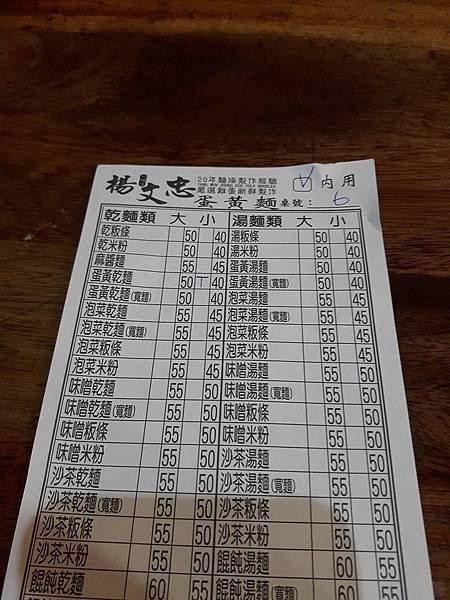 楊文忠
20年麵條製作經驗
YANG WEN ZHONG EGG YOLK NOODLES
嚴選雞蛋新鮮製作
蛋黃麵
V 內用
桌號: 6
乾麵類 大 小 湯麵類 大 小
乾粄條 50 40 湯粄條 50 40
乾米粉 50 40 湯米粉 50 40
麻醬麵 55 45 蛋黃湯麵 50 40
蛋黃乾麵 50 一 40 蛋黃湯麵(寬麵) 50 40
蛋黃乾麵(寬麵) 50 40 泡菜湯麵 55 45
泡菜乾麵 55 45 泡菜湯麵(寬麵) 55 45
泡菜乾麵(寬麵) 55 45 泡菜粄條 55 45
泡菜粄條 55 45 泡菜米粉 55 45
泡菜米粉 55 45 味噌湯麵 55 50
味噌乾麵 55 50 味噌湯麵(寬麵) 55 50
味噌乾麵(寬麵) 55 50 味噌粄條 55 50
味噌粄條 55 50 味噌米粉 55 50
味噌米粉 55 50 沙茶湯麵 55 50
沙茶乾麵 55 50 沙茶湯麵(寬麵) 55 50
沙茶乾麵(寬麵) 55 50 沙茶粄條 55 50
沙茶粄條 55 50 沙茶米粉 55 50
沙茶米粉 55 50 餛飩湯麵 60 55
餛飩乾麵 60 55 餛飩湯麵(寬麵)